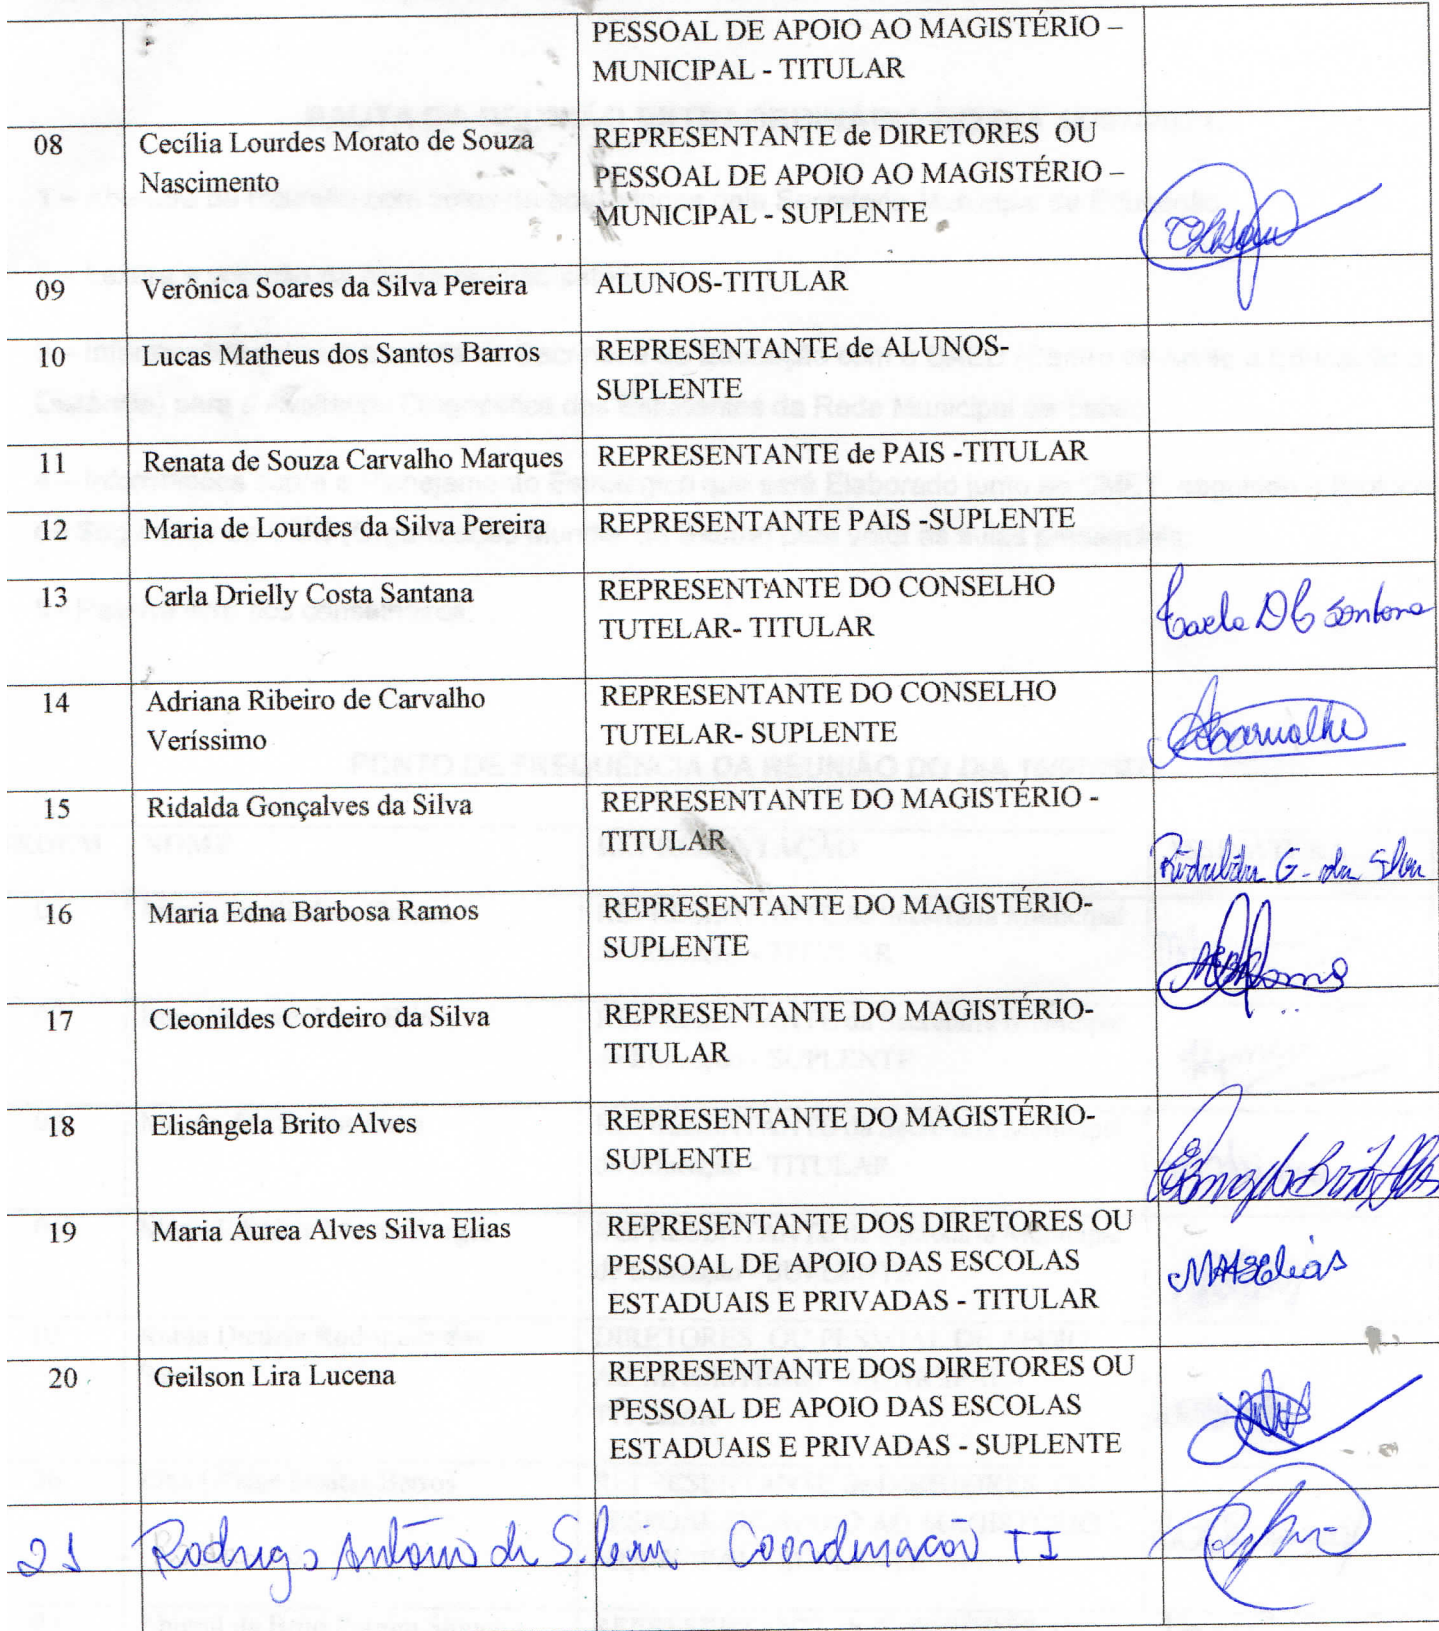 PESSOAL DE APOIO AO MAGISTÉRIO –
MUNICIPAL - TITULAR
08 Cecília Lourdes Morato de Souza REPRESENTANTE de DIRETORES OU
Nascimento PESSOAL DE APOIO AO MAGISTÉRIO –
MUNICIPAL - SUPLENTE
09 Verônica Soares da Silva Pereira ALUNOS-TITULAR
10 Lucas Matheus dos Santos Barros REPRESENTANTE de ALUNOS-
SUPLENTE
11 Renata de Souza Carvalho Marques REPRESENTANTE de PAIS -TITULAR
12 Maria de Lourdes da Silva Pereira REPRESENTANTE PAIS -SUPLENTE
13 Carla Drielly Costa Santana REPRESENTANTE DO CONSELHO
TUTELAR- TITULAR Carla D C Santana
14 Adriana Ribeiro de Carvalho REPRESENTANTE DO CONSELHO
Veríssimo TUTELAR- SUPLENTE
15 Ridalda Gonçalves da Silva REPRESENTANTE DO MAGISTÉRIO -
TITULAR Ridalda G. da Silva
16 Maria Edna Barbosa Ramos REPRESENTANTE DO MAGISTÉRIO-
SUPLENTE
17 Cleonildes Cordeiro da Silva REPRESENTANTE DO MAGISTÉRIO-
TITULAR
18 Elisângela Brito Alves REPRESENTANTE DO MAGISTÉRIO-
SUPLENTE Elisângela Brito Alves
19 Maria Áurea Alves Silva Elias REPRESENTANTE DOS DIRETORES OU
PESSOAL DE APOIO DAS ESCOLAS MAASElias
ESTADUAIS E PRIVADAS - TITULAR
20 Geilson Lira Lucena REPRESENTANTE DOS DIRETORES OU
PESSOAL DE APOIO DAS ESCOLAS
ESTADUAIS E PRIVADAS - SUPLENTE
21 Rodrigo Antônio de Coordenação TI